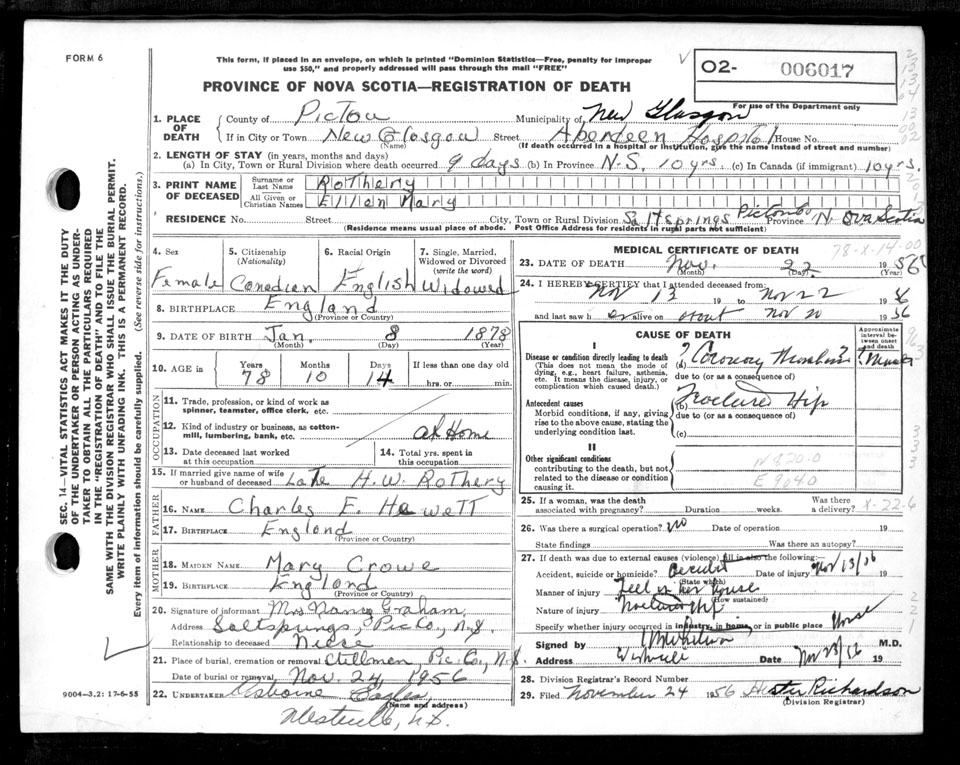 FORM 6
This form, if placed in an envelope, on which is printed "Dominion Statistics—Free, penalty for improper
use $50," and properly addressed will pass through the mail "FREE"
PROVINCE OF NOVA SCOTIA—REGISTRATION OF DEATH
02- 006017
For use of the Department only
SEC. 14—VITAL STATISTICS ACT MAKES IT THE DUTY
OF THE UNDERTAKER OR PERSON ACTING AS UNDER-
TAKER TO OBTAIN ALL THE PARTICULARS REQUIRED
IN THE "REGISTRATION OF DEATH" AND TO FILE THE
SAME WITH THE DIVISION REGISTRAR WHO SHALL ISSUE THE BURIAL PERMIT.
WRITE PLAINLY WITH UNFADING INK. THIS IS A PERMANENT RECORD.
Every item of information should be carefully supplied. (See reverse side for instructions.)
1. PLACE OF DEATH
County of Pictou Municipality of New Glasgow
If in City or Town New Glosgow Street Aberdeen Hospitol House No.
(Name) (If death occurred in a hospital or institution, give the name instead of street and number)
2. LENGTH OF STAY (in years, months and days)
(a) In City, Town or Rural Division where death occurred 9 days (b) In Province N.S. 10 yrs. (c) In Canada (if immigrant) 10 yrs.
3. PRINT NAME OF DECEASED
Surname or Last Name Rothery
All Given or Christian Names Ellen Mary
RESIDENCE No. Street City, Town or Rural Division Saltsprings Pictou Co Province Nova Scotia
(Residence means usual place of abode. Post Office Address for residents in rural parts not sufficient)
4. Sex Female
5. Citizenship (Nationality) Canadian
6. Racial Origin English
7. Single, Married, Widowed or Divorced (write the word) Widowed
8. BIRTHPLACE England
(Province or Country)
9. DATE OF BIRTH Jan. 8 1878
(Month) (Day) (Year)
10. AGE in Years Months Days If less than one day old
78 10 14 hrs. or min.
OCCUPATION
11. Trade, profession, or kind of work as
spinner, teamster, office clerk, etc.
12. Kind of industry or business, as cotton-
mill, lumbering, bank, etc. at Home
13. Date deceased last worked
at this occupation
14. Total yrs. spent in
this occupation
15. If married give name of wife
or husband of deceased Late H. W. Rothery
FATHER
16. NAME Charles E. Hewett
17. BIRTHPLACE England
(Province or Country)
MOTHER
18. MAIDEN NAME Mary Crowe
19. BIRTHPLACE England
(Province or Country)
20. Signature of informant Mrs Nancy Graham
Address Saltsprings, Pic Co, N.S.
Relationship to deceased Niece
21. Place of burial, cremation or removal Pic. Co., N.S.
Date of burial or removal Nov. 24, 1956
22. UNDERTAKER
(Name and address)
Westville, N.S.
9004—3.2: 17-6-55
MEDICAL CERTIFICATE OF DEATH
78-X-14-00
23. DATE OF DEATH Nov. 22 1956
(Month) (Day) (Year)
24. I HEREBY CERTIFY that I attended deceased from:
Nov 13 19 to Nov 22 1956
and last saw h er alive on about Nov 20 1956
CAUSE OF DEATH
Approximate interval between onset and death
I
Disease or condition directly leading to death
(This does not mean the mode of
dying, e.g., heart failure, asthenia,
etc. It means the disease, injury, or
complication which caused death.)
(a) ? Coronary Thrombosis
due to (or as a consequence of)
Antecedent causes
Morbid conditions, if any, giving
rise to the above cause, stating the
underlying condition last.
(b) Fractured Hip
due to (or as a consequence of)
(c)
II
Other significant conditions
contributing to the death, but not
related to the disease or condition
causing it.
N820.0
E9040
25. If a woman, was the death
associated with pregnancy? Duration weeks. Was there
a delivery? X-22-6
26. Was there a surgical operation? No Date of operation 19
State findings Was there an autopsy?
27. If death was due to external causes (violence) fill in also the following:
Accident, suicide or homicide? Accident Date of injury Nov 13/56 19
(State which)
Manner of injury Fell in her house
(How sustained)
Nature of injury Fractured hip
Specify whether injury occurred in industry, in home, or in public place House
Signed by M.D.
Address Westville Date Nov 23/56 19
28. Division Registrar's Record Number
29. Filed November 24 1956 Hester Richardson
(Division Registrar)